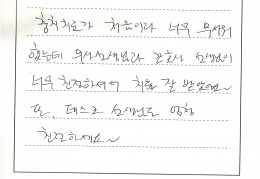 충치치료가 처음이라 너무 무서워
했는데 의사선생님과 간호사 선생님이
너무 친절하셔서 치료 잘 받았어요~
또, 데스크 선생님도 엄청
친절하세요~